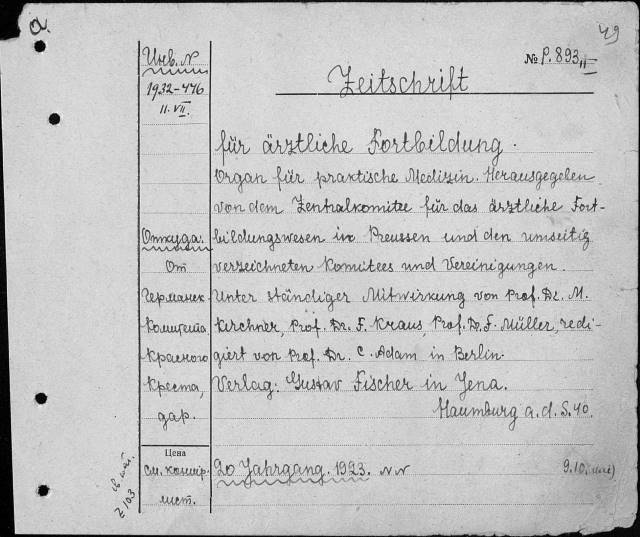 a
49
Инв. №
№ P.893 III
1932-446
11. VII.
Zeitschrift
für ärztliche Fortbildung.
Organ für praktische Medizin. Herausgegeben
von dem Zentralkomitee für das ärztliche Fort-
Откуда:
bildungswesen in Preussen und den umseitig
От
verzeichneten Komitees und Vereinigungen.
Германск.
Unter ständiger Mitwirkung von Prof. Dr. M.
Комитета
Kirchner, Prof. Dr. F. Kraus, Prof. Dr. F. Müller, redi-
Красного
giert von Prof. Dr. C. Adam in Berlin.
Креста,
Verlag: Gustav Fischer in Jena.
дар.
Naumburg a.d. S. 40.
Цена
см. контр.
20 Jahrgang. 1923. NN
9.10.
лист.